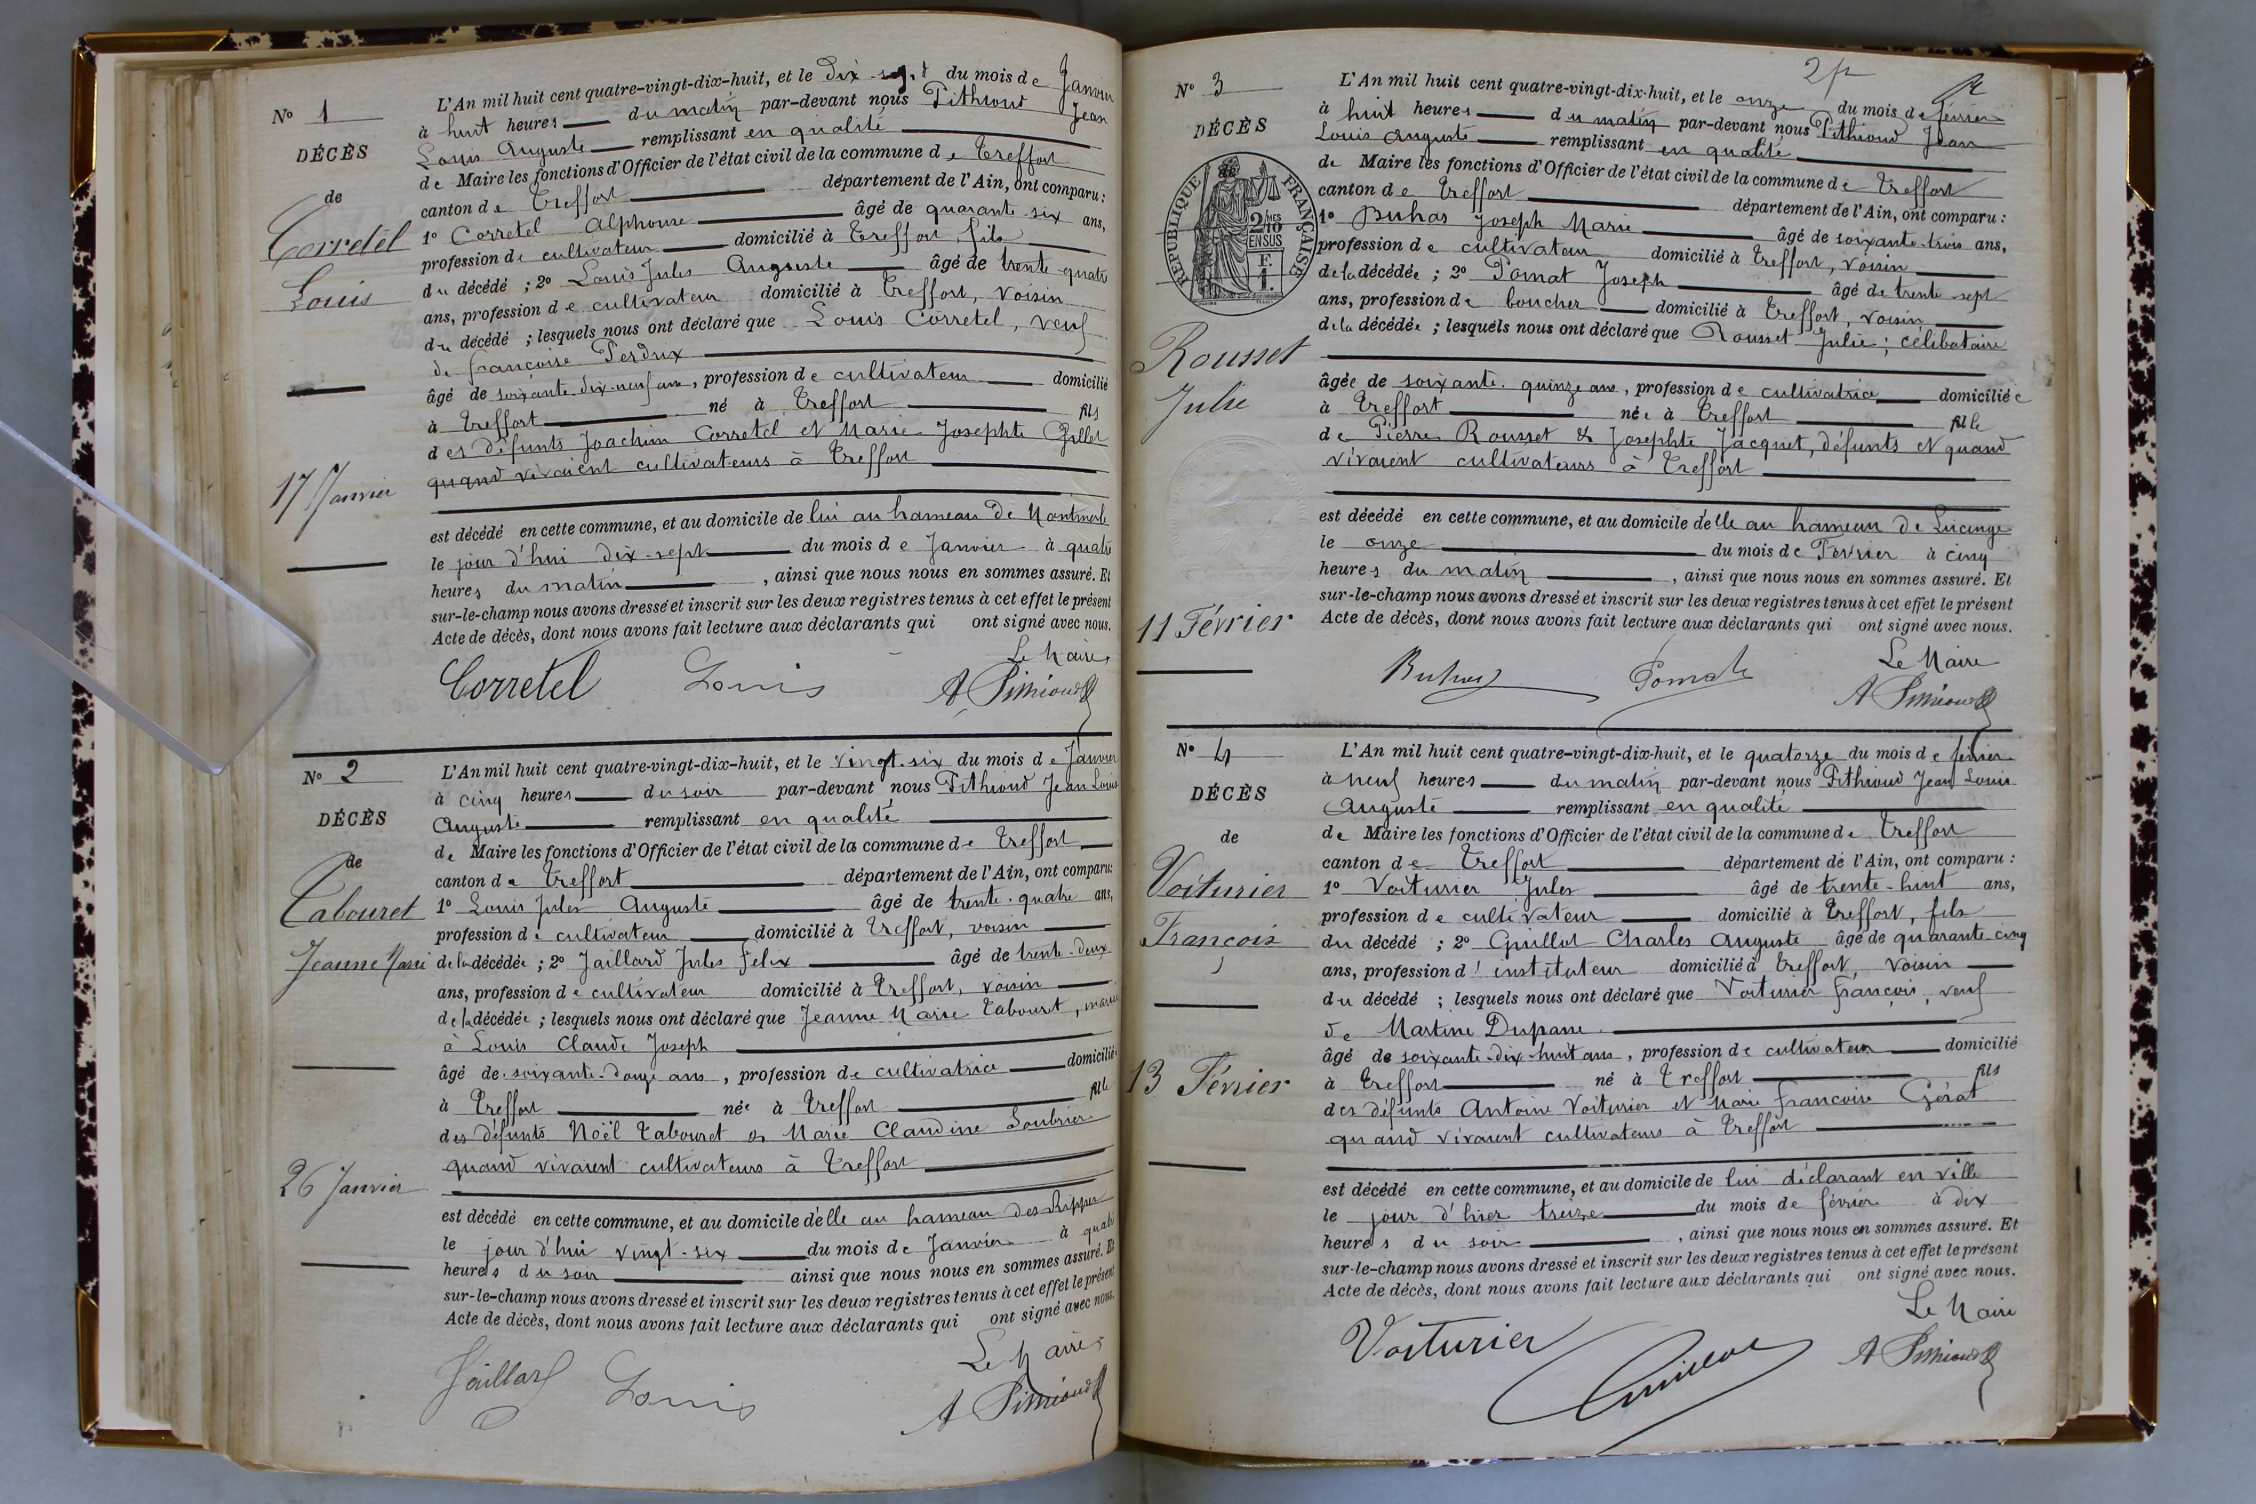 N° 1
DÉCÈS
de
Corretel
Louis
17 Janvier
L'An mil huit cent quatre-vingt-dix-huit, et le dix-sept du mois de Janvier
à huit heures du matin par-devant nous Pithioud Jean
Louis Auguste remplissant en qualité
de Maire les fonctions d'Officier de l'état civil de la commune de Treffort
canton de Treffort département de l'Ain, ont comparu :
1° Corretel Alphonse âgé de quarante-six ans,
profession de cultivateur domicilié à Treffort, fils
du décédé ; 2° Louis Jules Auguste âgé de trente-quatre
ans, profession de cultivateur domicilié à Treffort, voisin
du décédé ; lesquels nous ont déclaré que Louis Corretel, veuf
de françoise Perdrix
âgé de soixante-dix-neuf ans, profession de cultivateur domicilié
à Treffort né à Treffort fils
des défunts Joachim Corretel et Marie Josephte Grillet
quand vivaient cultivateurs à Treffort
est décédé en cette commune, et au domicile de lui au hameau de Montmerle
le jour d'hui dix-sept du mois de Janvier à quatre
heures du matin, ainsi que nous nous en sommes assuré. Et
sur-le-champ nous avons dressé et inscrit sur les deux registres tenus à cet effet le présent
Acte de décès, dont nous avons fait lecture aux déclarants qui ont signé avec nous.
Le Maire,
Corretel Louis A Pithioud
N° 2
DÉCÈS
de
Tabouret
Jeanne Marie
26 Janvier
L'An mil huit cent quatre-vingt-dix-huit, et le vingt-six du mois de Janvier
à cinq heures du soir par-devant nous Pithioud Jean Louis
Auguste remplissant en qualité
de Maire les fonctions d'Officier de l'état civil de la commune de Treffort
canton de Treffort département de l'Ain, ont comparu :
1° Louis Jules Auguste âgé de trente-quatre ans,
profession de cultivateur domicilié à Treffort, voisin
de la décédée ; 2° Jaillard Jules Felix âgé de trente-deux
ans, profession de cultivateur domicilié à Treffort, voisin
de la décédée ; lesquels nous ont déclaré que Jeanne Marie Tabouret, mariée
à Louis Claude Joseph
âgé de soixante-douze ans, profession de cultivatrice domiciliée
à Treffort née à Treffort fille
des défunts Noël Tabouret & Marie Claudine Soubrier
quand vivaient cultivateurs à Treffort
est décédé en cette commune, et au domicile d'elle au hameau des Rippes
le jour d'hui vingt-six du mois de Janvier à quatre
heures du soir ainsi que nous nous en sommes assuré. Et
sur-le-champ nous avons dressé et inscrit sur les deux registres tenus à cet effet le présent
Acte de décès, dont nous avons fait lecture aux déclarants qui ont signé avec nous.
Le Maire,
Jaillard Louis A Pithioud
2
N° 3
DÉCÈS
RÉPUBLIQUE FRANÇAISE
2/10 EN SUS
F. 1.
Rousset
Julie
11 Février
L'An mil huit cent quatre-vingt-dix-huit, et le onze du mois de février
à huit heures du matin par-devant nous Pithioud Jean
Louis Auguste remplissant en qualité
de Maire les fonctions d'Officier de l'état civil de la commune de Treffort
canton de Treffort département de l'Ain, ont comparu :
1° Buhas Joseph Marie âgé de soixante-trois ans,
profession de cultivateur domicilié à Treffort, voisin
de la décédée ; 2° Pomat Joseph âgé de trente-sept
ans, profession de boucher domicilié à Treffort, voisin
de la décédée ; lesquels nous ont déclaré que Rousset Julie ; célibataire
âgée de soixante-quinze ans, profession de cultivatrice domiciliée
à Treffort née à Treffort fille
de Pierre Rousset & Josephte Jacquet, défunts et quand
vivaient cultivateurs à Treffort
est décédé en cette commune, et au domicile d'elle au hameau de Lucinge
le onze du mois de Février à cinq
heures du matin, ainsi que nous nous en sommes assuré. Et
sur-le-champ nous avons dressé et inscrit sur les deux registres tenus à cet effet le présent
Acte de décès, dont nous avons fait lecture aux déclarants qui ont signé avec nous.
Le Maire
Buhas Pomat A Pithioud
N° 4
DÉCÈS
de
Voiturier
François
13 Février
L'An mil huit cent quatre-vingt-dix-huit, et le quatorze du mois de février
à neuf heures du matin par-devant nous Pithioud Jean Louis
Auguste remplissant en qualité
de Maire les fonctions d'Officier de l'état civil de la commune de Treffort
canton de Treffort département de l'Ain, ont comparu :
1° Voiturier Jules âgé de trente-huit ans,
profession de cultivateur domicilié à Treffort, fils
du décédé ; 2° Guillot Charles Auguste âgé de quarante-cinq
ans, profession d'instituteur domicilié à Treffort, voisin
du décédé ; lesquels nous ont déclaré que Voiturier françois, veuf
de Martine Dupane
âgé de soixante-dix-huit ans, profession de cultivateur domicilié
à Treffort né à Treffort fils
des défunts Antoine Voiturier et Marie francoise Gérat
quand vivaient cultivateurs à Treffort
est décédé en cette commune, et au domicile de lui déclarant en ville
le jour d'hier treize du mois de février à dix
heures du soir, ainsi que nous nous en sommes assuré. Et
sur-le-champ nous avons dressé et inscrit sur les deux registres tenus à cet effet le présent
Acte de décès, dont nous avons fait lecture aux déclarants qui ont signé avec nous.
Le Maire
Voiturier Guillot A Pithioud